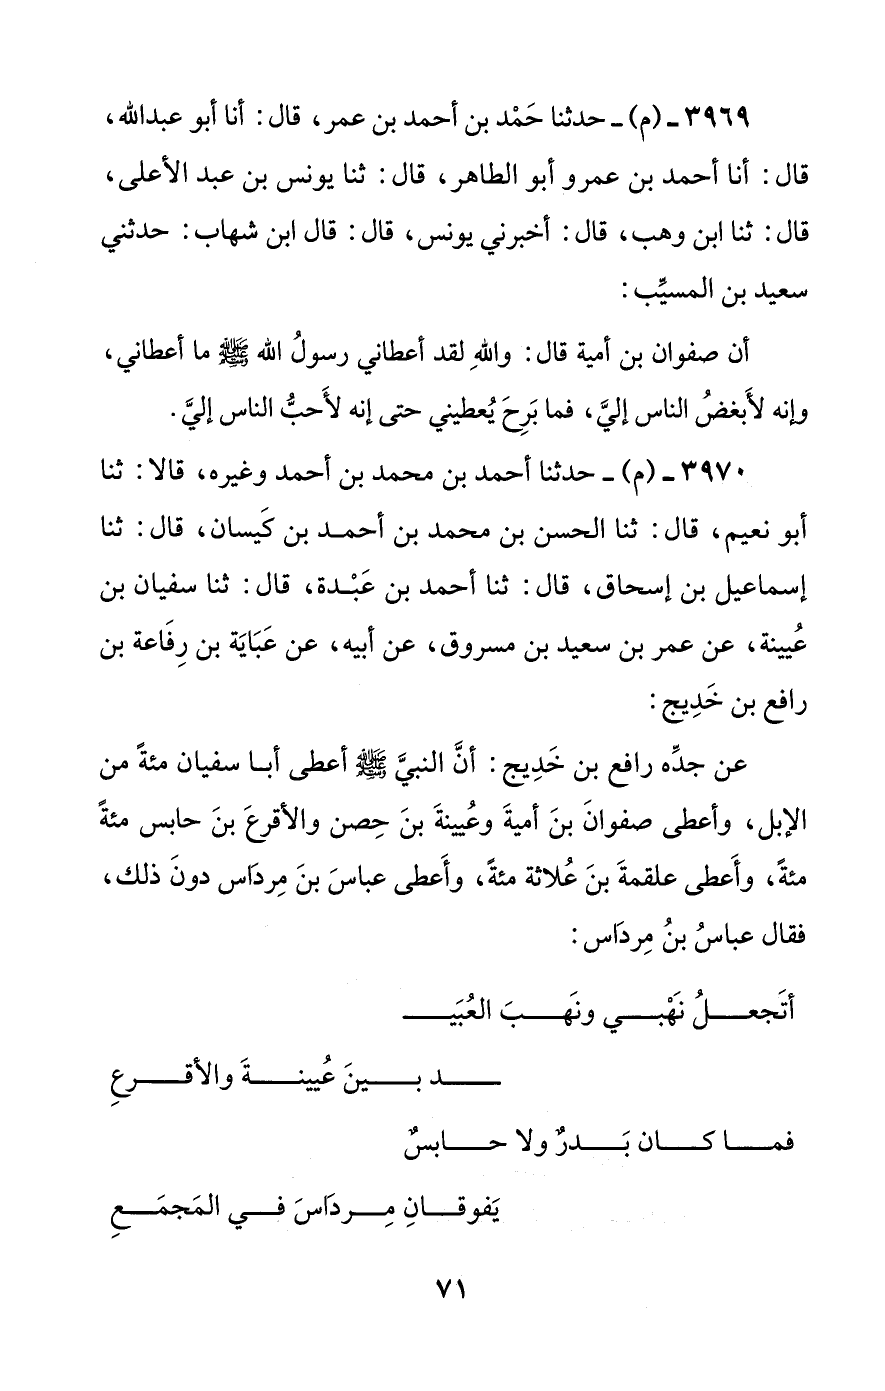 ٣٩٦٩ ـ (م) ـ حدثنا حَمْد بن أحمد بن عمر، قال: أنا أبو عبدالله،
قال: أنا أحمد بن عمرو أبو الطاهر، قال: ثنا يونس بن عبد الأعلى،
قال: ثنا ابن وهب، قال: أخبرني يونس، قال: قال ابن شهاب: حدثني
سعيد بن المسيِّب:
أن صفوان بن أمية قال: واللهِ لقد أعطاني رسولُ الله ﷺ ما أعطاني،
وإنه لأَبغضُ الناس إليَّ، فما بَرِحَ يُعطيني حتى إنه لأَحبُّ الناس إليَّ.
٣٩٧٠ ـ (م) ـ حدثنا أحمد بن محمد بن أحمد وغيره، قالا: ثنا
أبو نعيم، قال: ثنا الحسن بن محمد بن أحمـد بن كَيسان، قال: ثنا
إسماعيل بن إسحاق، قال: ثنا أحمد بن عَبْـدة، قال: ثنا سفيان بن
عُيينة، عن عمر بن سعيد بن مسروق، عن أبيه، عن عَبَايَة بن رِفَاعة بن
رافع بن خَدِيج:
عن جدِّه رافع بن خَدِيج: أنَّ النبيَّ ﷺ أعطى أبـا سفيان مئةً من
الإبل، وأعطى صفوانَ بنَ أميةَ وعُيينةَ بنَ حِصن والأقرعَ بنَ حابس مئةً
مئةً، وأَعطى علقمةَ بنَ عُلاثة مئةً، وأَعطى عباسَ بنَ مِردَاس دونَ ذلك،
فقال عباسُ بنُ مِردَاس:
أتَجعـــلُ نَهْبـــي ونَهـــبَ العُبَيـــ
ـــد بـــينَ عُيينـــةَ والأقـــرعِ
فمـــا كـــان بَـــدرٌ ولا حـــابسٌ
يَفوقـــانِ مِـــردَاسَ فـــي المَجمَـــعِ
٧١